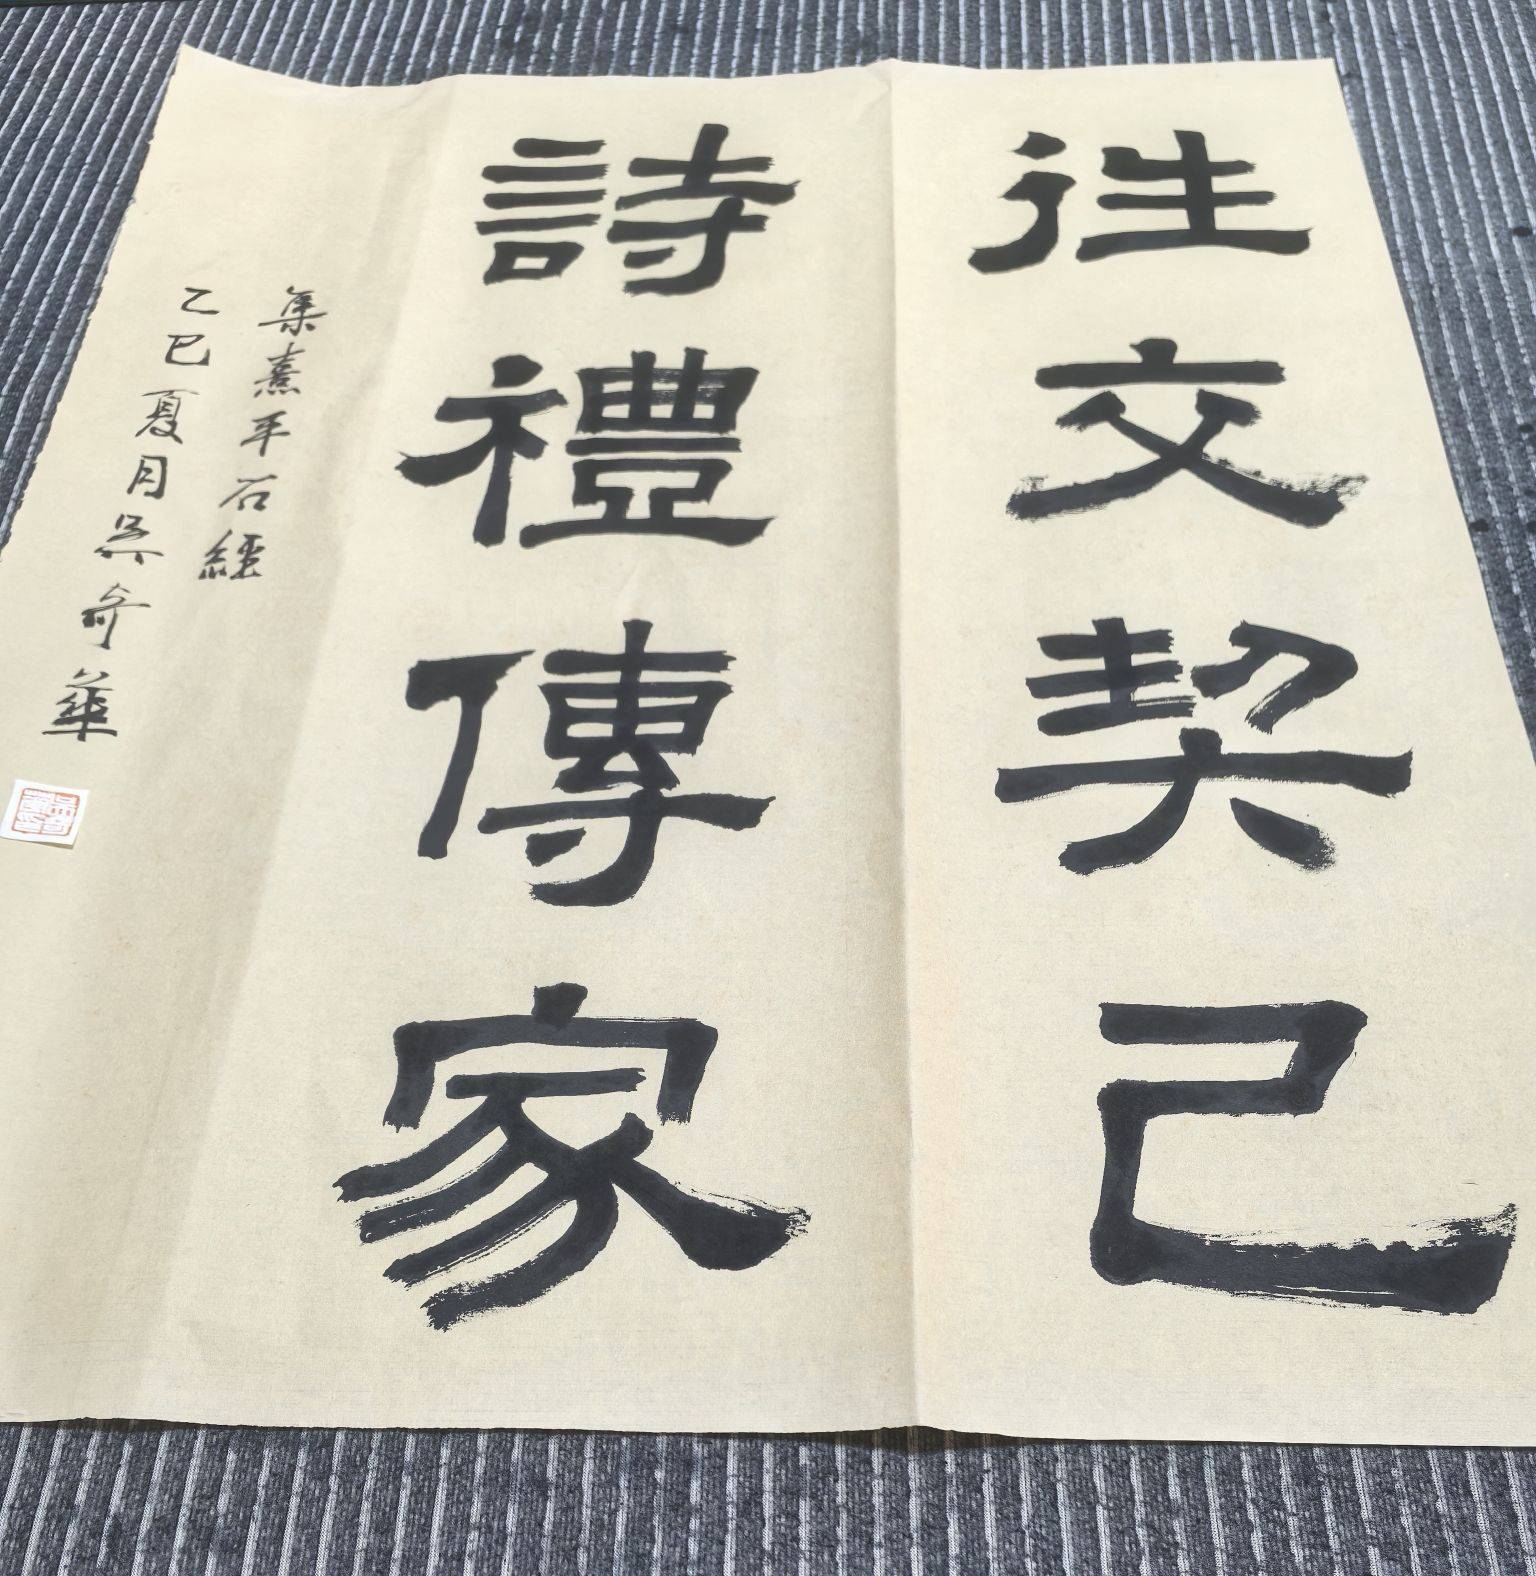 徃交契己
詩禮傳家
集熹平石經
乙巳夏月吳奇華